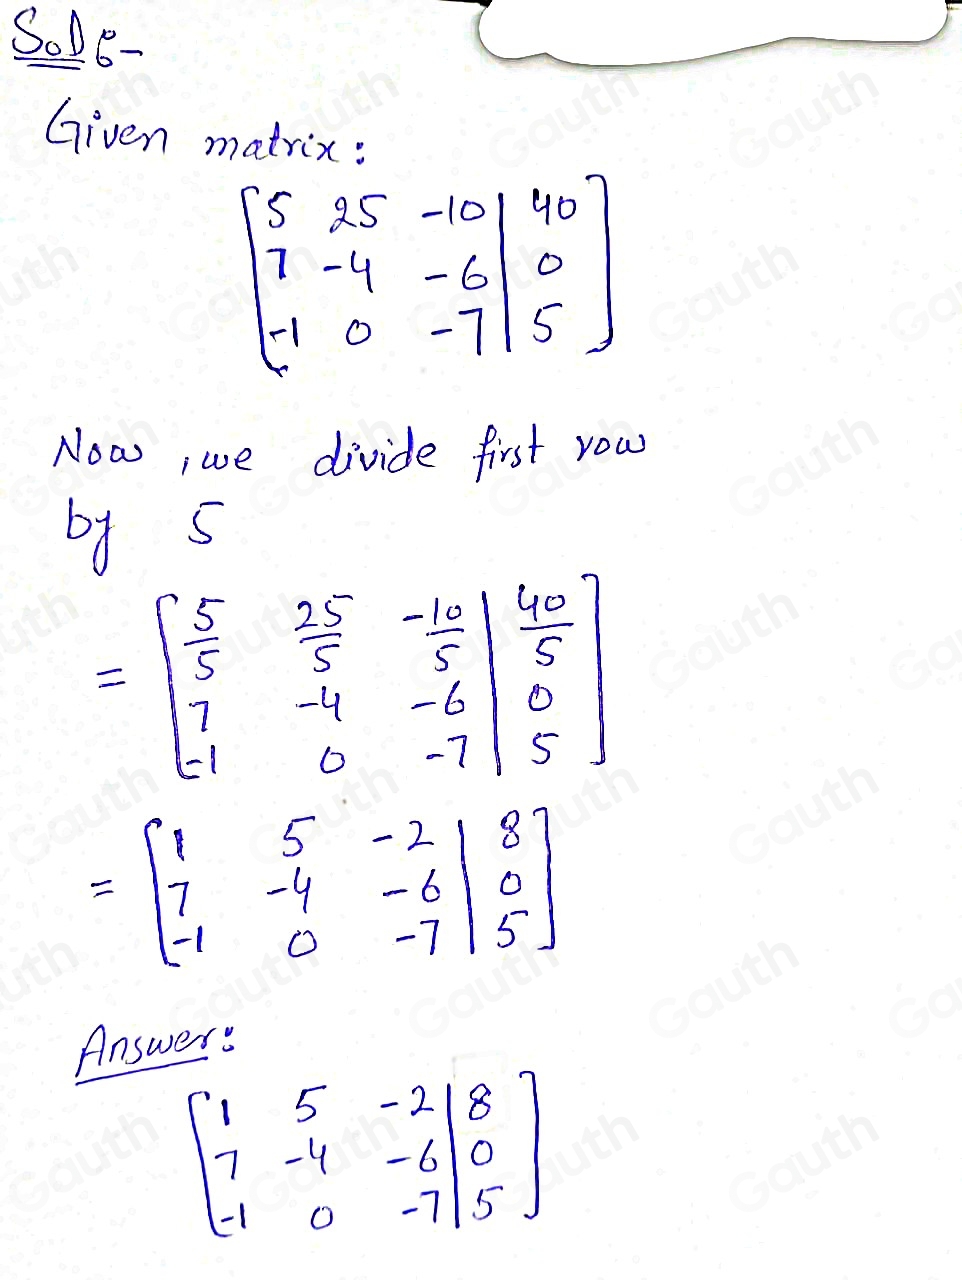 Sol:-
Given matrix:
[5 25 -10 | 40]
[7 -4 -6 | 0]
[-1 0 -7 | 5]
Now, we divide first row
by 5
= [5/5 25/5 -10/5 | 40/5]
[7 -4 -6 | 0]
[-1 0 -7 | 5]
= [1 5 -2 | 8]
[7 -4 -6 | 0]
[-1 0 -7 | 5]
Answer:
[1 5 -2 | 8]
[7 -4 -6 | 0]
[-1 0 -7 | 5]
Gauth